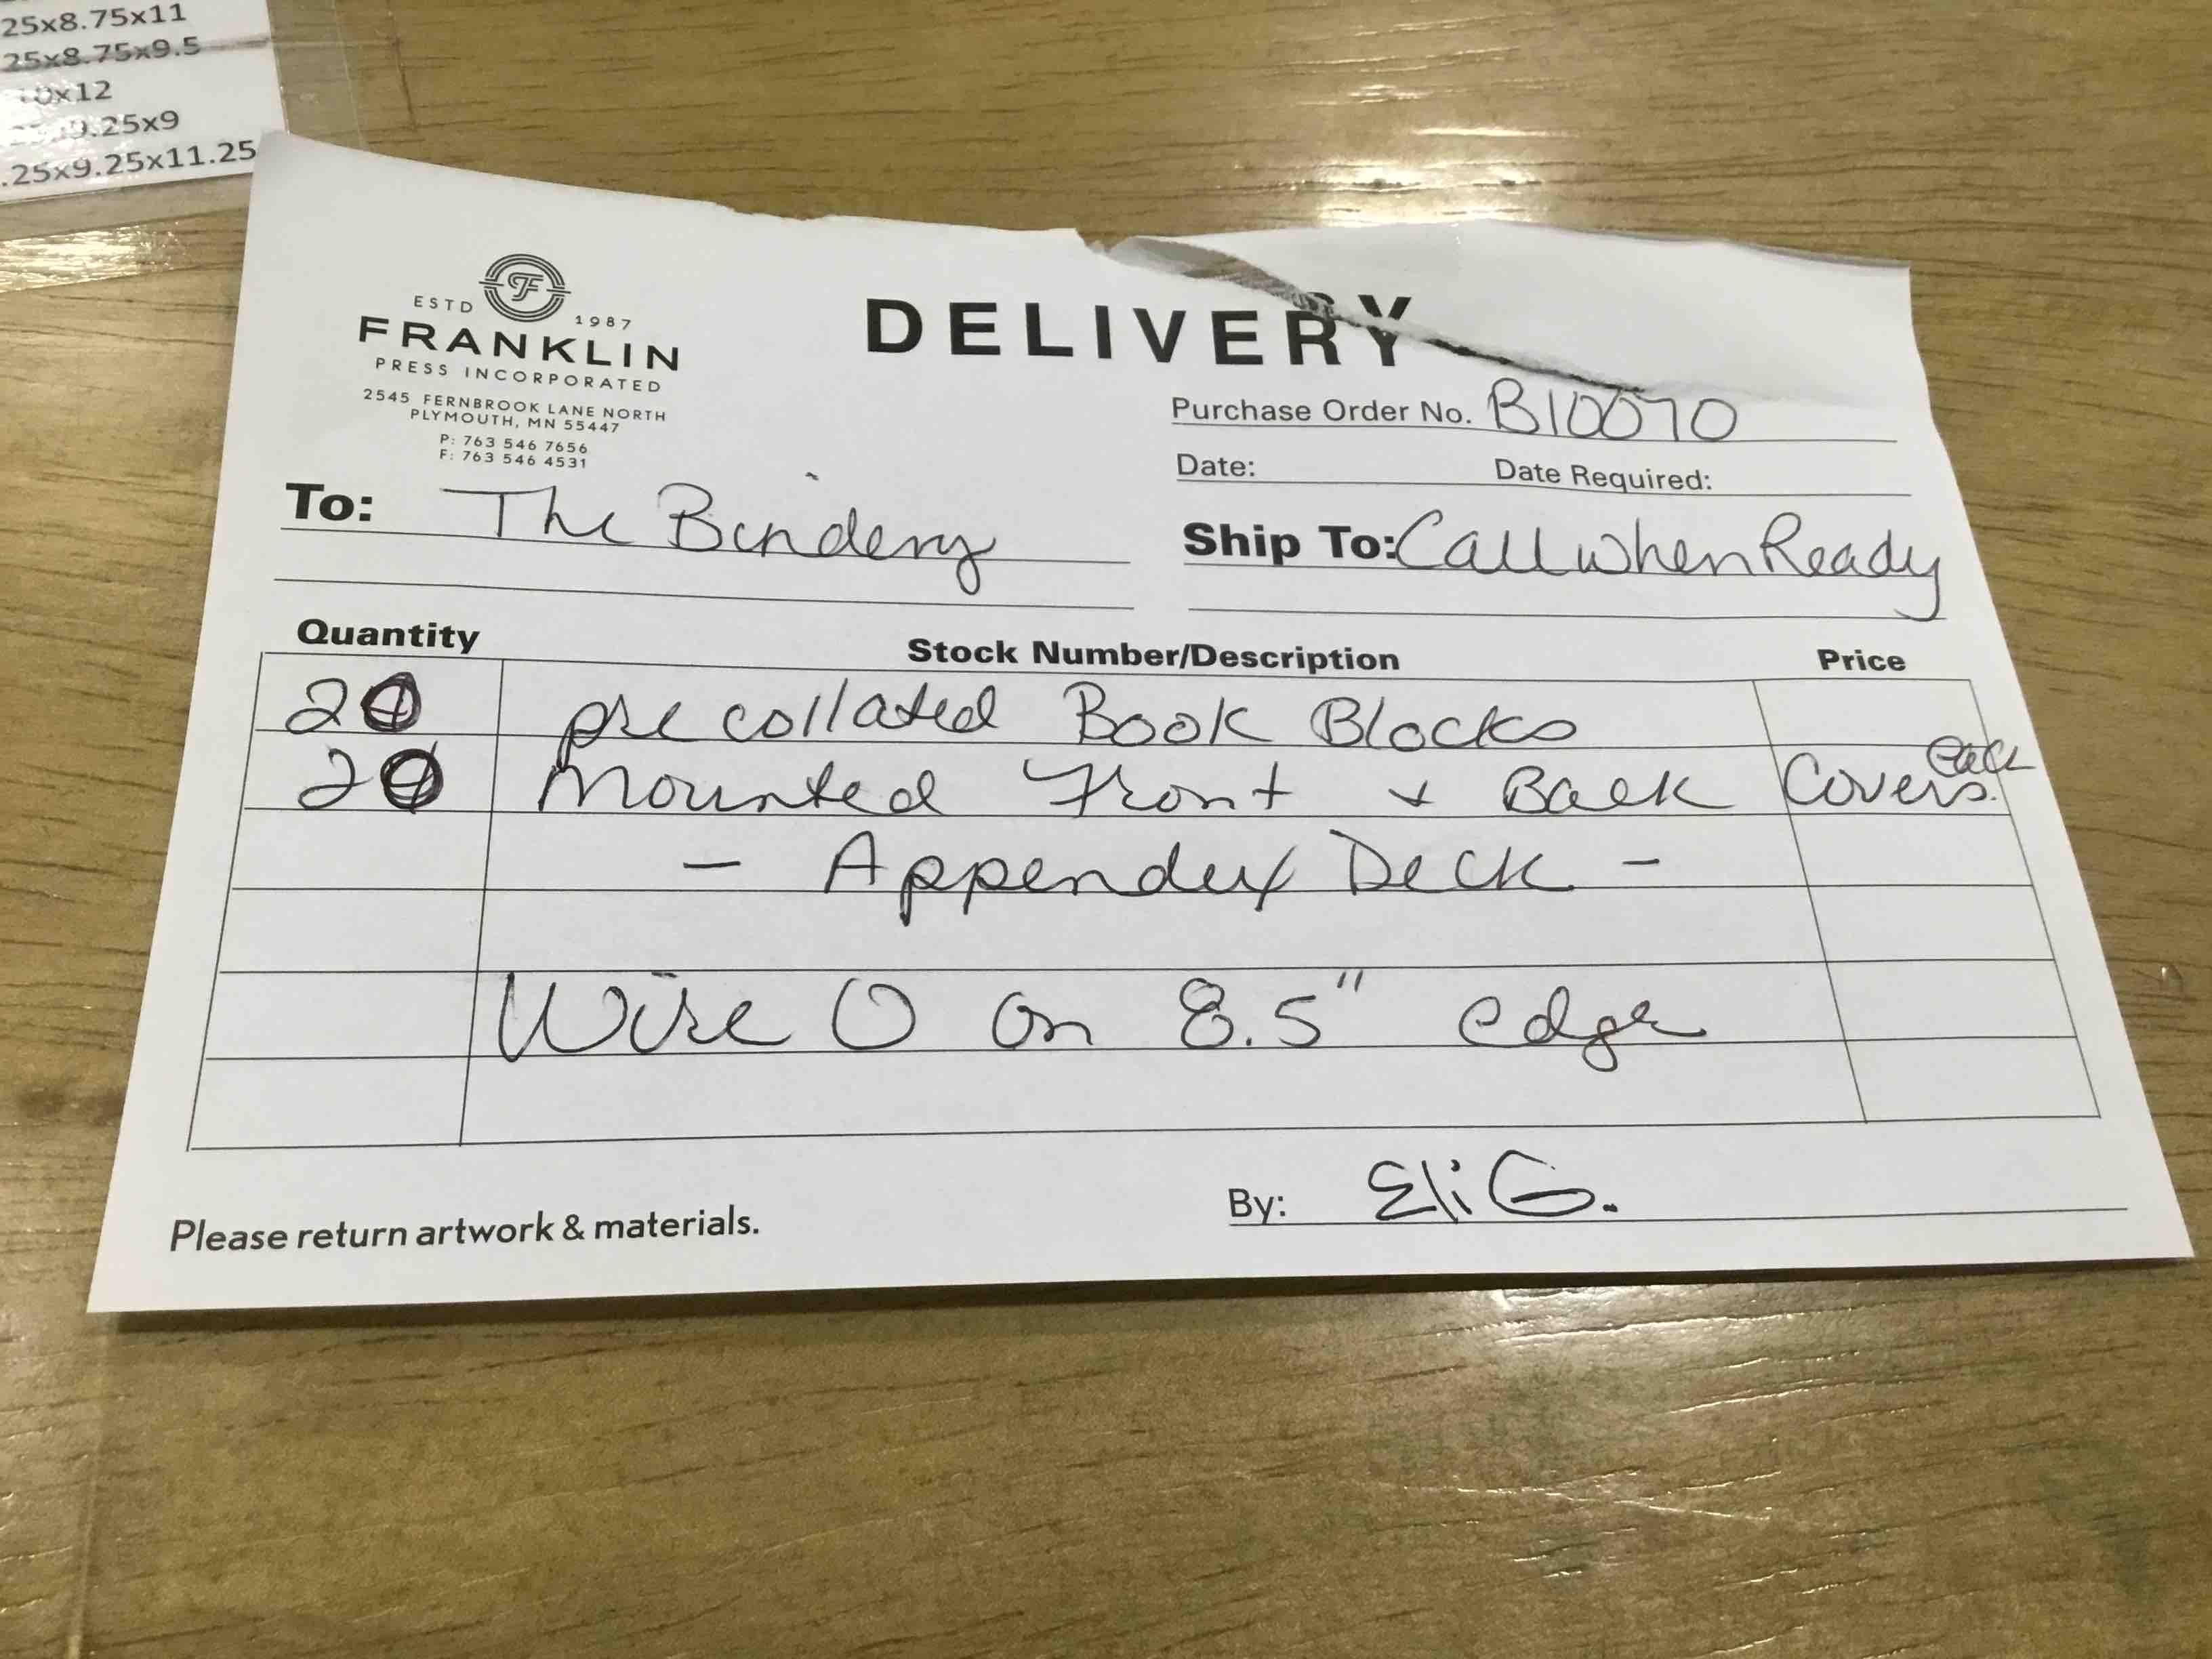 25x8.75x11
25x8.75x9.5
x12
.25x9
.25x9.25x11.25
F
ESTD 1987
FRANKLIN
PRESS INCORPORATED
2545 FERNBROOK LANE NORTH
PLYMOUTH, MN 55447
P: 763 546 7656
F: 763 546 4531
DELIVERY
Purchase Order No. B10070
Date: Date Required:
To: The Bindery
Ship To: Call when Ready
Quantity Stock Number/Description Price
20 pre collated Book Blocks
20 Mounted Front + Back Covers. each
- Appendix Deck -
Wire O on 8.5" edge
Please return artwork & materials.
By: Eli G.